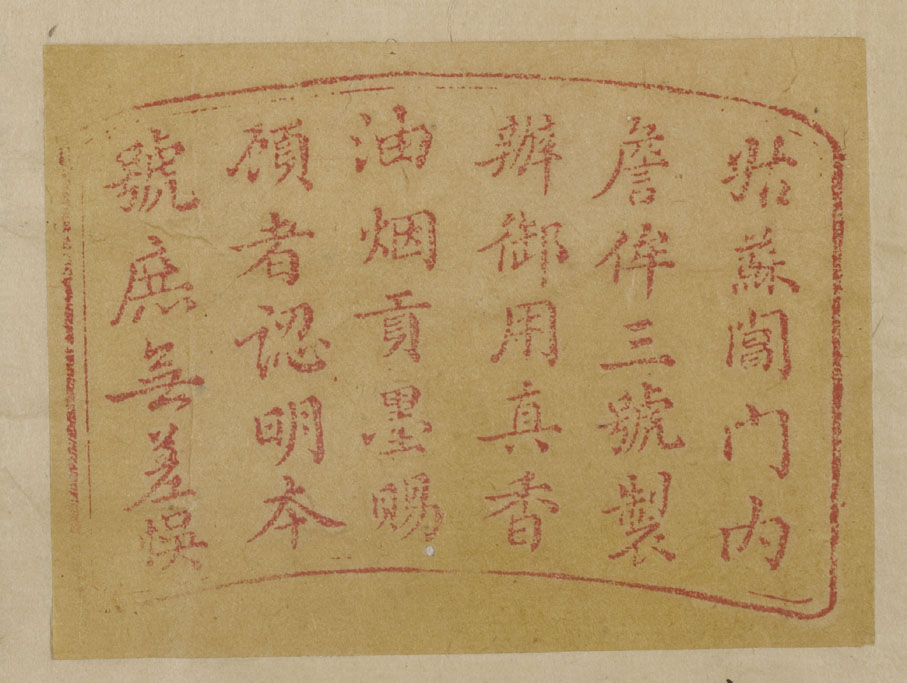 姑蘇閶門内
詹侔三號製
辦御用真香
油烟貢墨賜
頋者認明本
號庶無差悞